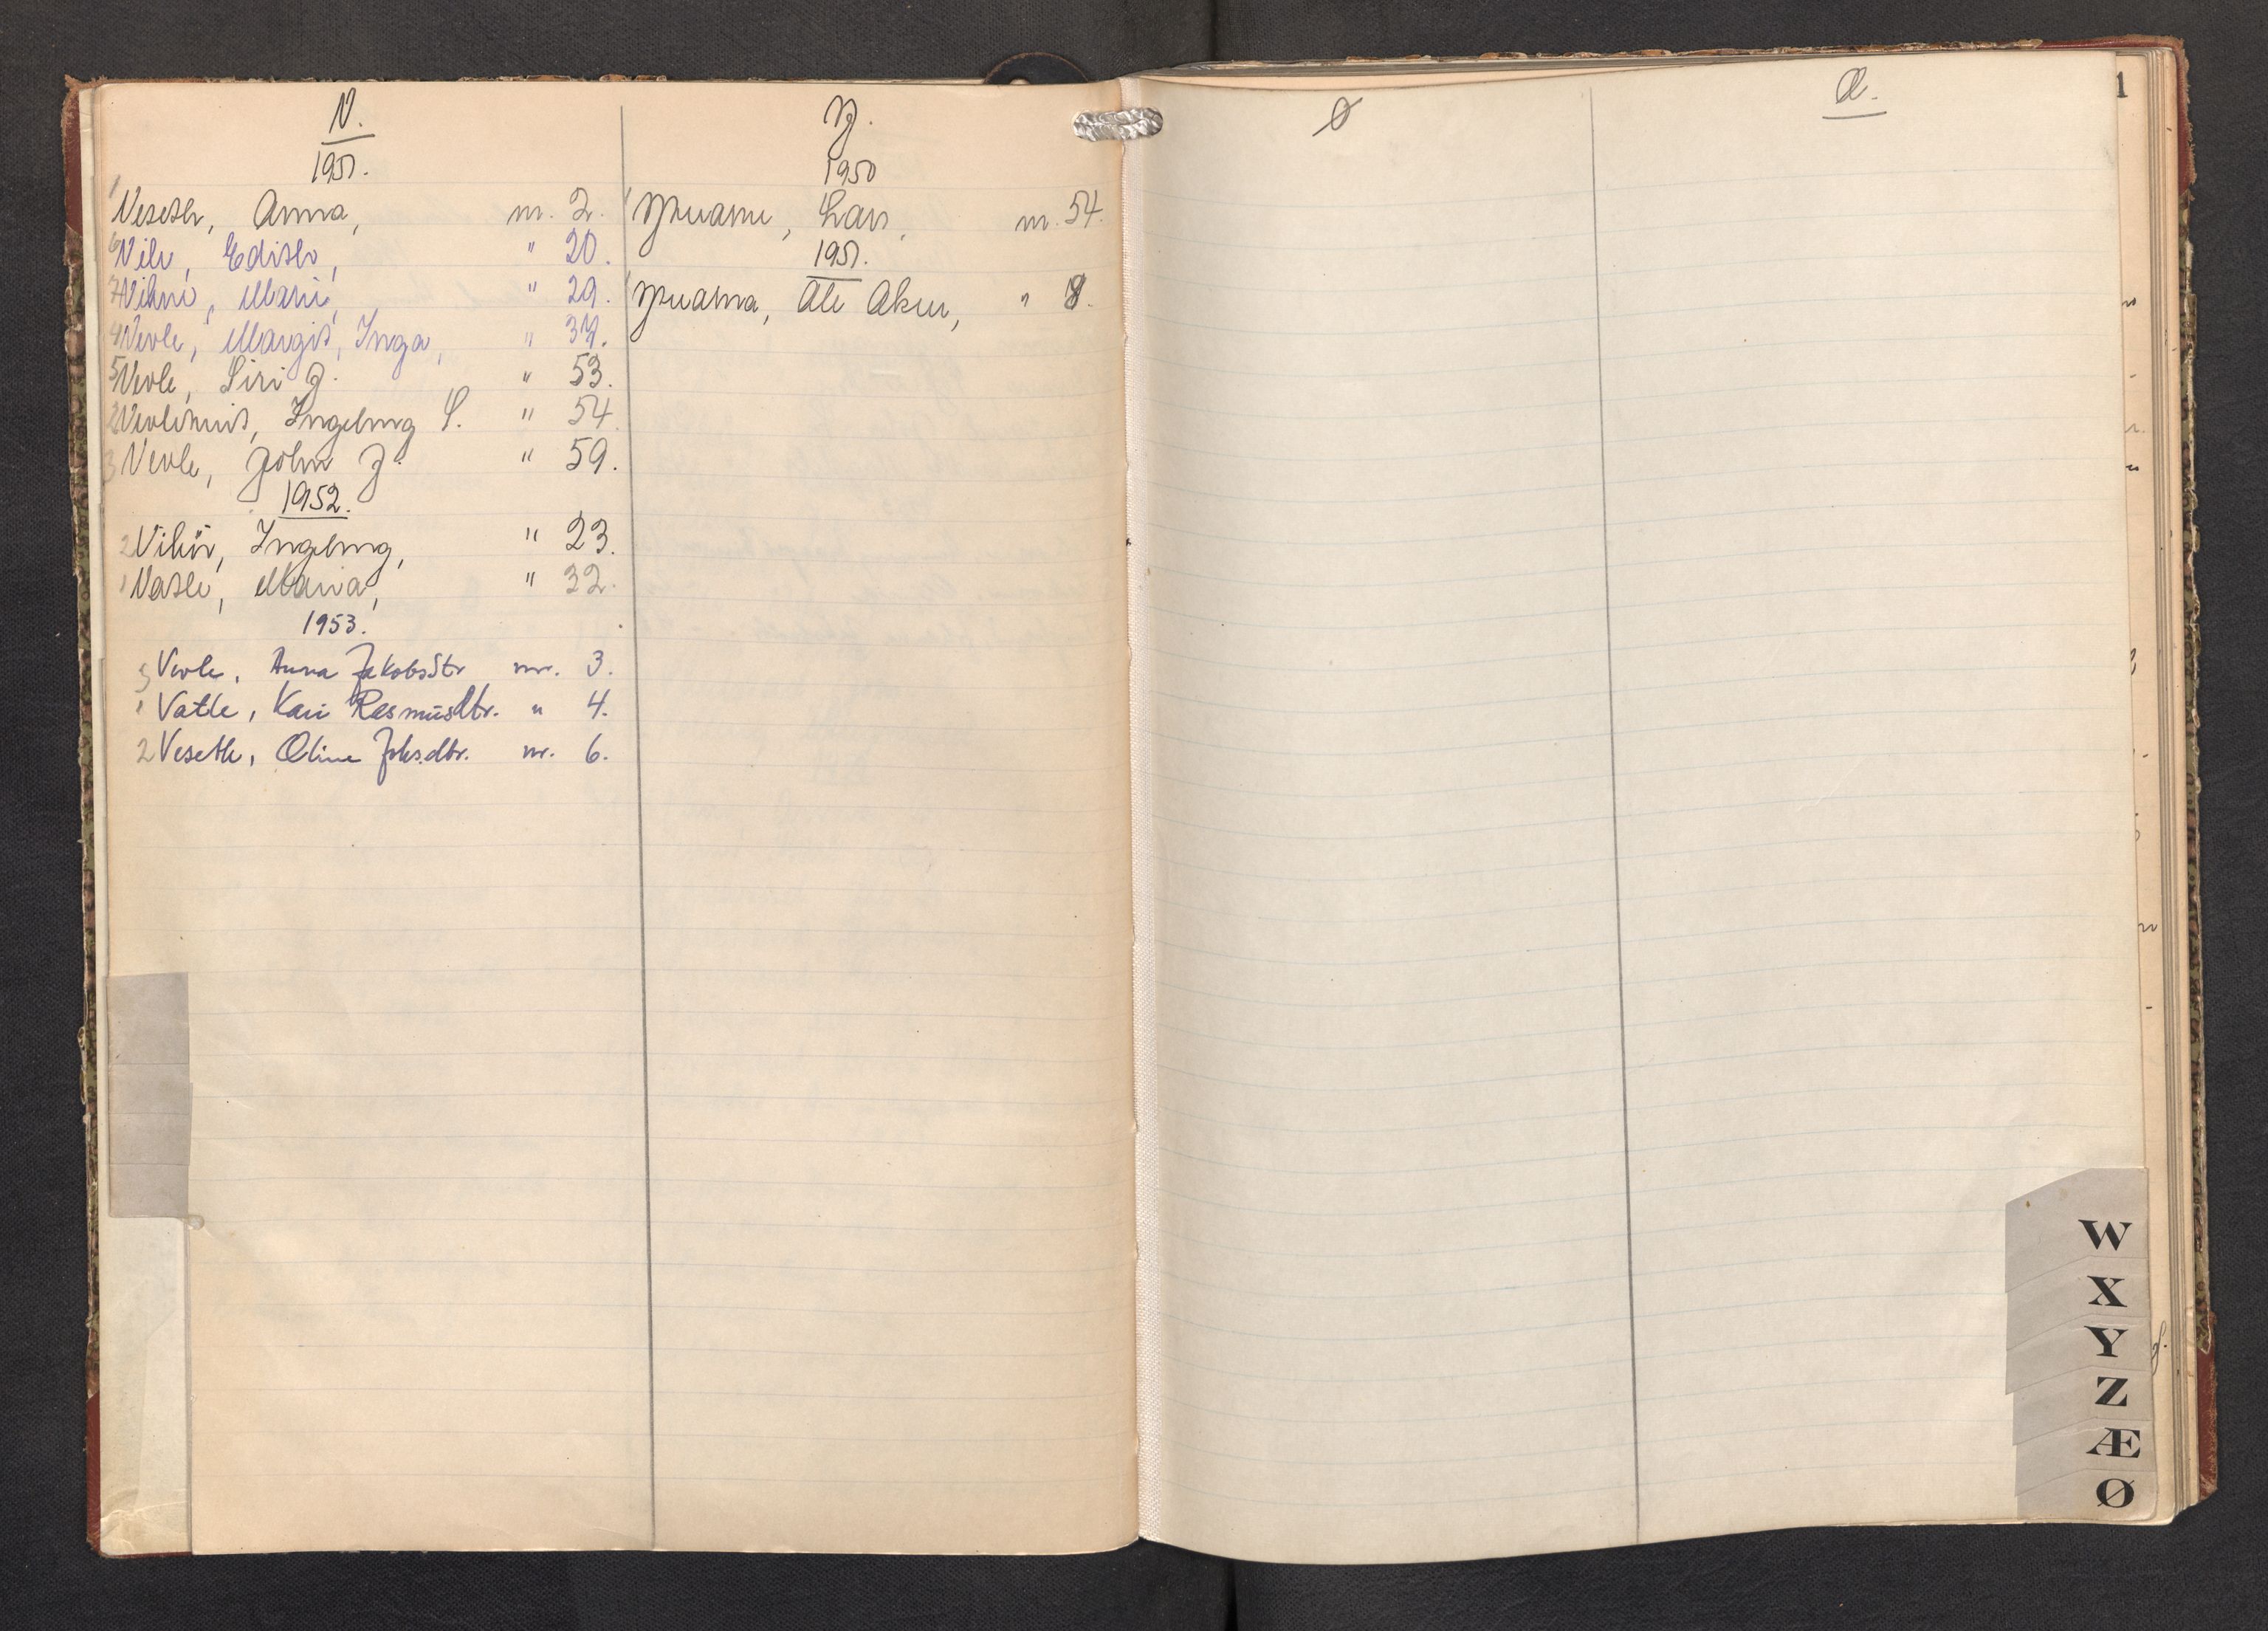 V.
1951.
1 Veseth, Anna, nr. 2.
6 Vik, Edith, " 20.
7 Vikne, Marie, " 29.
4 Vevle, Margit, Inga, " 37.
5 Vevle, Siri J. " 53.
Ingeborg S. " 54.
3 Vevle, John J. " 59.
1952.
2 Vikör, Ingeborg, " 23.
1 Vatle, Maria, " 32.
1953.
3 Vevle, Anna Jakobsdtr nr. 3.
1 Vatle, Kari Rasmusdtr. " 4.
2 Veseth, Oline Johs.dtr. nr. 6.
Y.
1950
1 Lars, nr. 54.
1951.
1 " 8.
Ø
Æ.
1
W
X
Y
Z
Æ
Ø